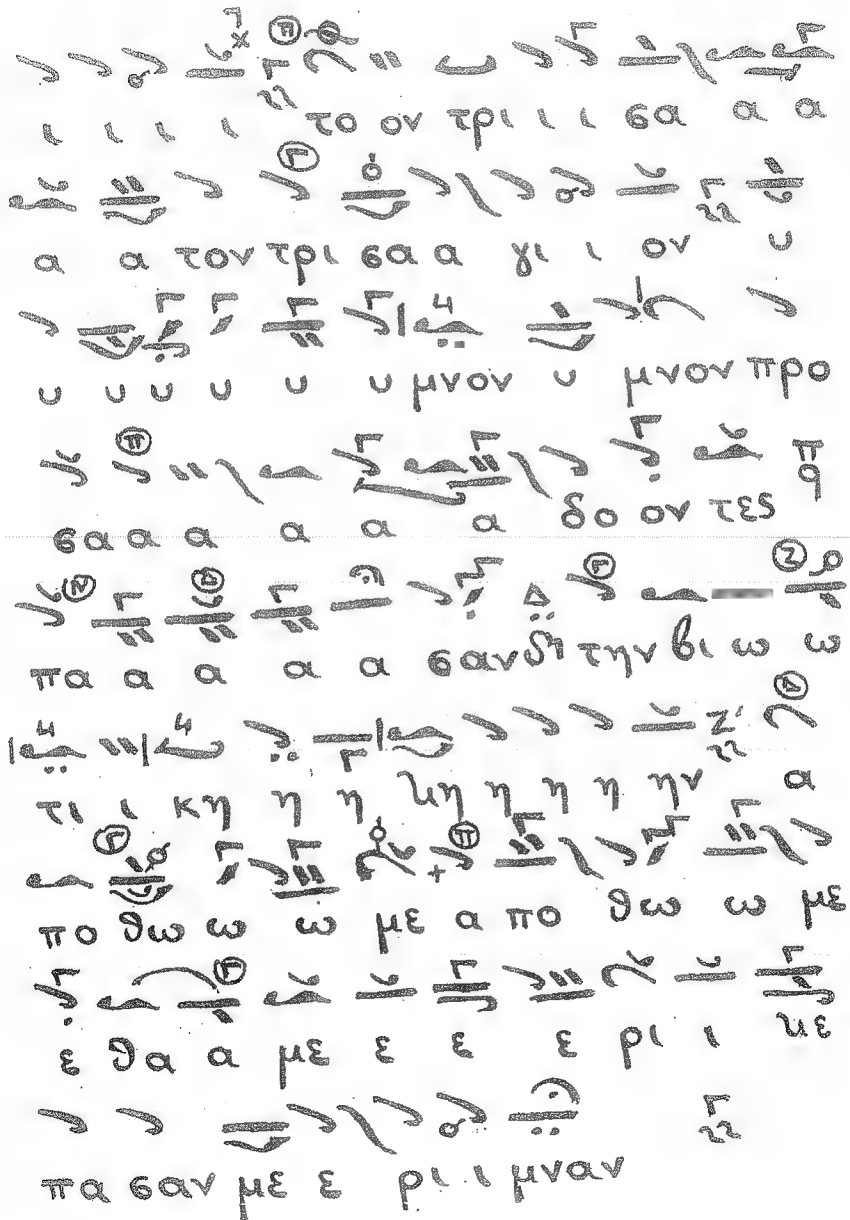 ι ι ι ι το ον τρι ι ι σα α α
α α τον τρι σα α γι ι ον υ
υ υ υ υ υ υ μνον υ μνον προ
σα α α α α α δο ον τες
πα α α α α σαν δη την βι ω ω
τι ι κη η η κη η η η ην α
πο θω ω ω με α πο θω ω με
ε θα α με ε ε ε ρι ι κε
πα σαν με ε ρι ι μναν